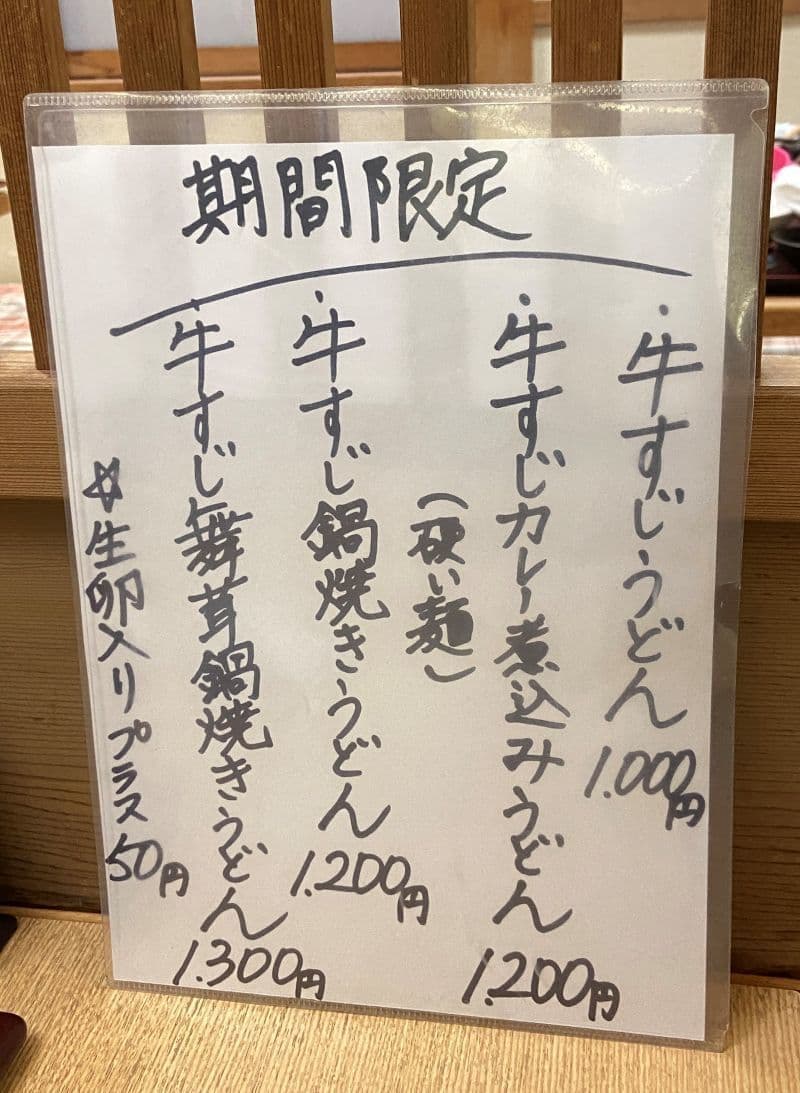 期間限定
・牛すじうどん 1.000円
・牛すじカレー煮込みうどん 1.200円
（硬い麺）
・牛すじ鍋焼きうどん 1.200円
・牛すじ舞茸鍋焼きうどん 1.300円
☆生卵入りプラス50円